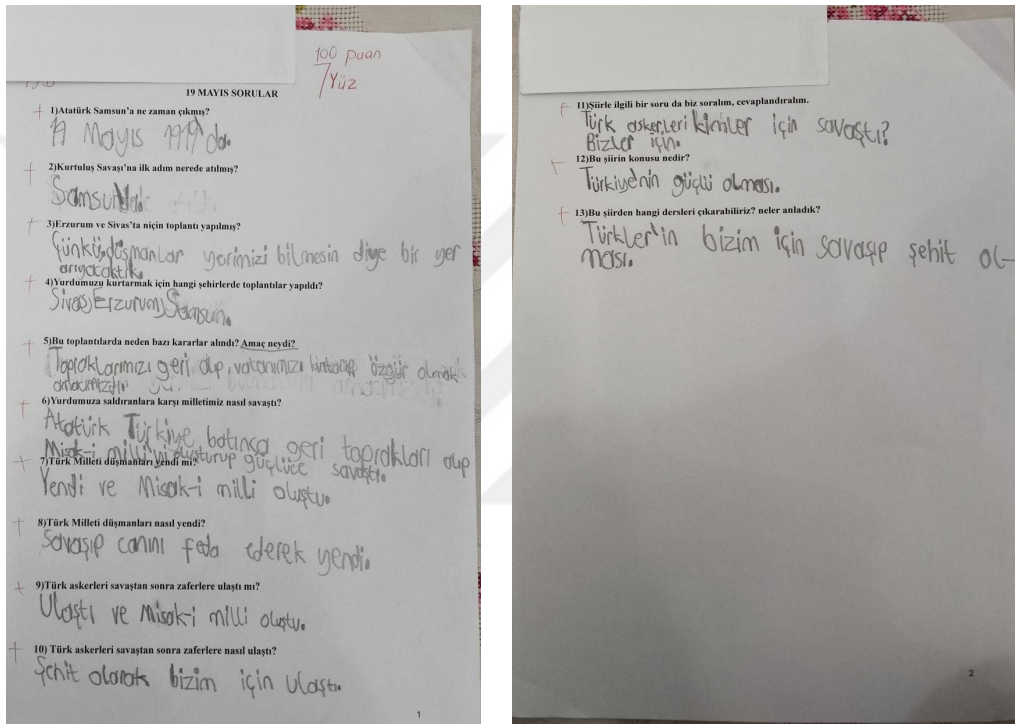 100 puan
Yüz
19 MAYIS SORULAR
1)Atatürk Samsun'a ne zaman çıkmış?
19 Mayıs 1919'da.
2)Kurtuluş Savaşı'na ilk adım nerede atılmış?
Samsun'da.
3)Erzurum ve Sivas'ta niçin toplantı yapılmış?
Çünkü düşmanlar yerimizi bilmesin diye bir yer
arıyacaktık.
4)Yurdumuzu kurtarmak için hangi şehirlerde toplantılar yapıldı?
Sivas, Erzurum, Samsun.
5)Bu toplantılarda neden bazı kararlar alındı? Amaç neydi?
Topraklarımızı geri alıp, vatanımızı özgür olmak
amacımızdı.
6)Yurdumuza saldıranlara karşı milletimiz nasıl savaştı?
Atatürk Türkiye batınca geri toprakları alıp
Misak-i milli'yi oluşturup güçlüce savaştı.
7)Türk Milleti düşmanları yendi mi?
Yendi ve Misak-i milli oluştu.
8)Türk Milleti düşmanları nasıl yendi?
Savaşıp canını feda ederek yendi.
9)Türk askerleri savaştan sonra zaferlere ulaştı mı?
Ulaştı ve Misak-i milli oluştu.
10) Türk askerleri savaştan sonra zaferlere nasıl ulaştı?
Şehit olarak bizim için ulaştı.
1
11)Şiirle ilgili bir soru da biz soralım, cevaplandıralım.
Türk askerleri kimler için savaştı?
Bizler için.
12)Bu şiirin konusu nedir?
Türkiye'nin güçlü olması.
13)Bu şiirden hangi dersleri çıkarabiliriz? neler anladık?
Türkler'in bizim için savaşıp şehit ol-
ması.
2